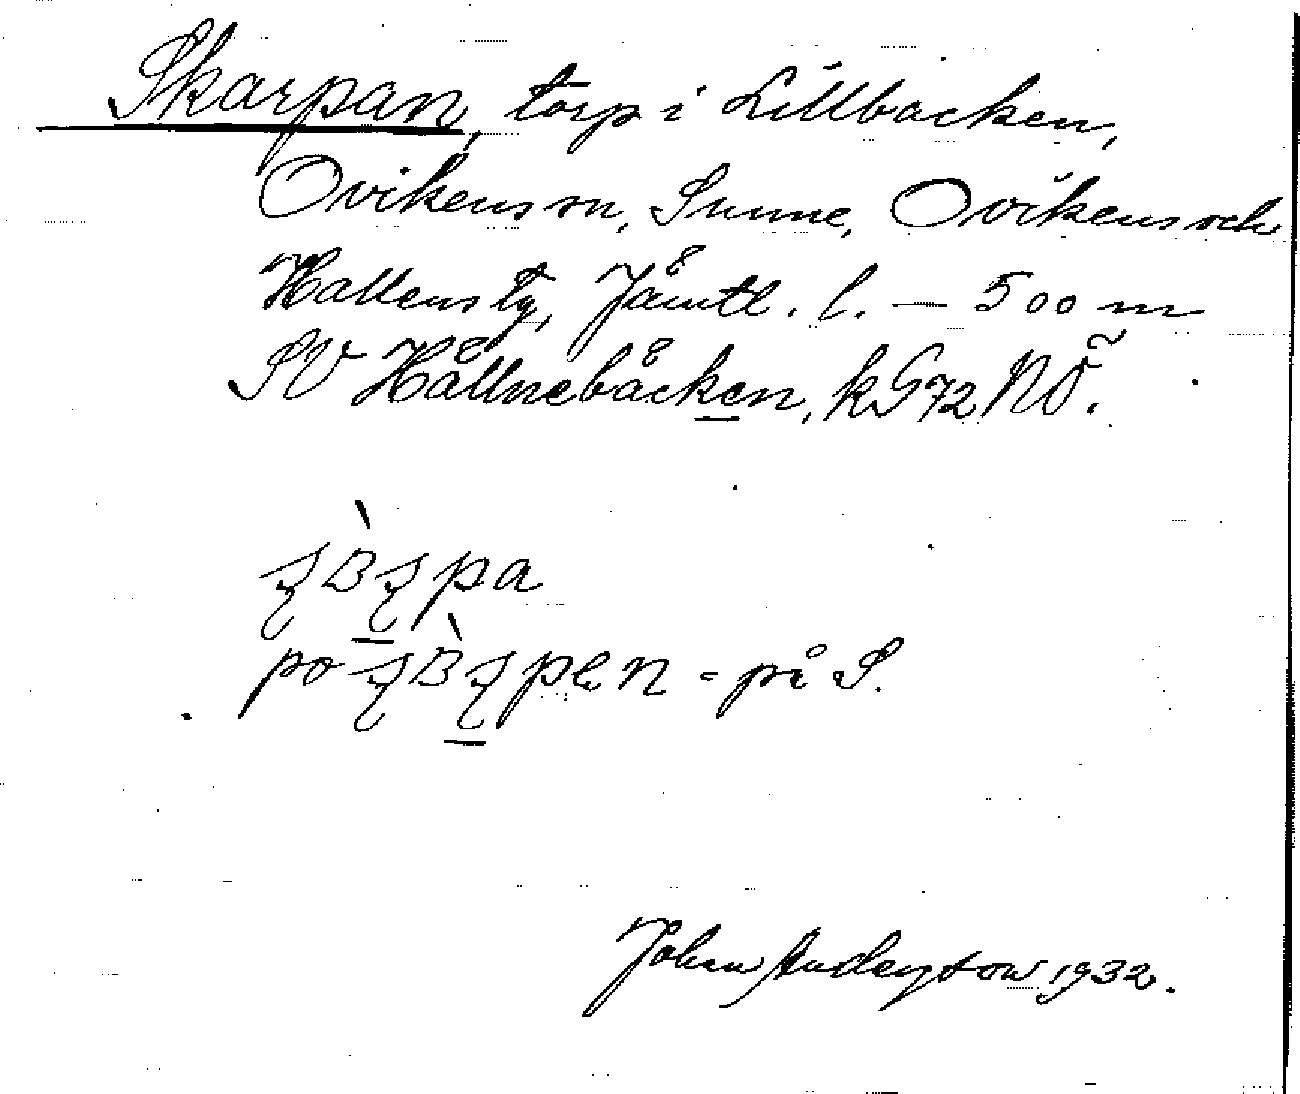 Skarpan, torp i Lillbacken,
Ovikens sn, Sunne, Ovikens och
Hallens tg, Jämtl. l. — 500 m
SV Hällnebäcken, kG72 NÖ.
pa
po pen = på S.
Johan 1932.